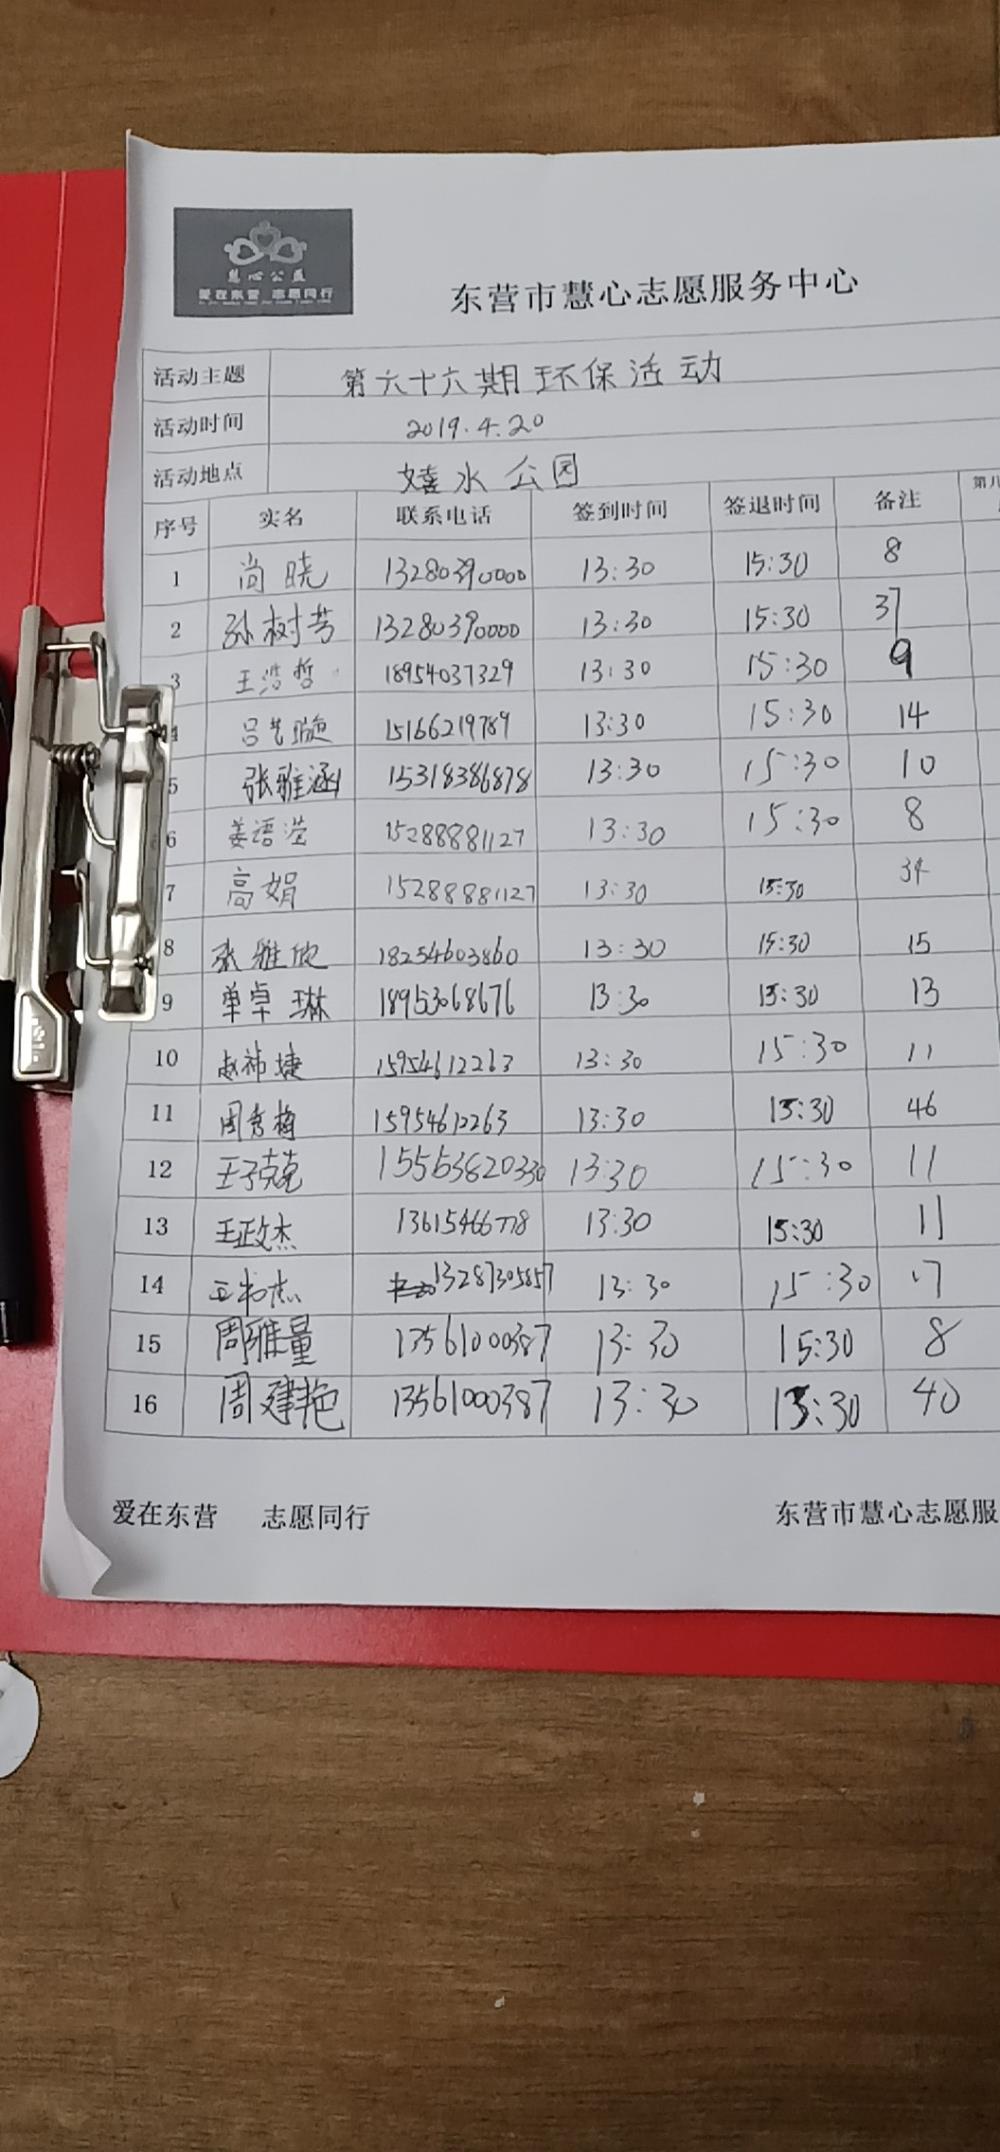 慧心公益
爱在东营 志愿同行
东营市慧心志愿服务中心
活动主题 第六十六期环保活动
活动时间 2019.4.20
活动地点 嬉水公园
序号 实名 联系电话 签到时间 签退时间 备注 第几
1 尚晓 13280390000 13:30 15:30 8
2 孙树芳 13280390000 13:30 15:30 37
3 王浩哲 18954037329 13:30 15:30 9
4 吕艺璇 15166219789 13:30 15:30 14
5 张雅涵 15318386878 13:30 15:30 10
6 姜语滢 15288881127 13:30 15:30 8
7 高娟 15288881127 13:30 15:30 34
8 张雅欣 18254603860 13:30 15:30 15
9 单卓琳 18953068676 13:30 15:30 13
10 赵祎婕 15954612263 13:30 15:30 11
11 周秀梅 15954612263 13:30 15:30 46
12 王子克 15563820330 13:30 15:30 11
13 王政杰 13615466778 13:30 15:30 11
14 13287305857 13:30 15:30 17
15 周雅量 13561000387 13:30 15:30 8
16 周建艳 13561000387 13:30 15:30 40
爱在东营 志愿同行
东营市慧心志愿服